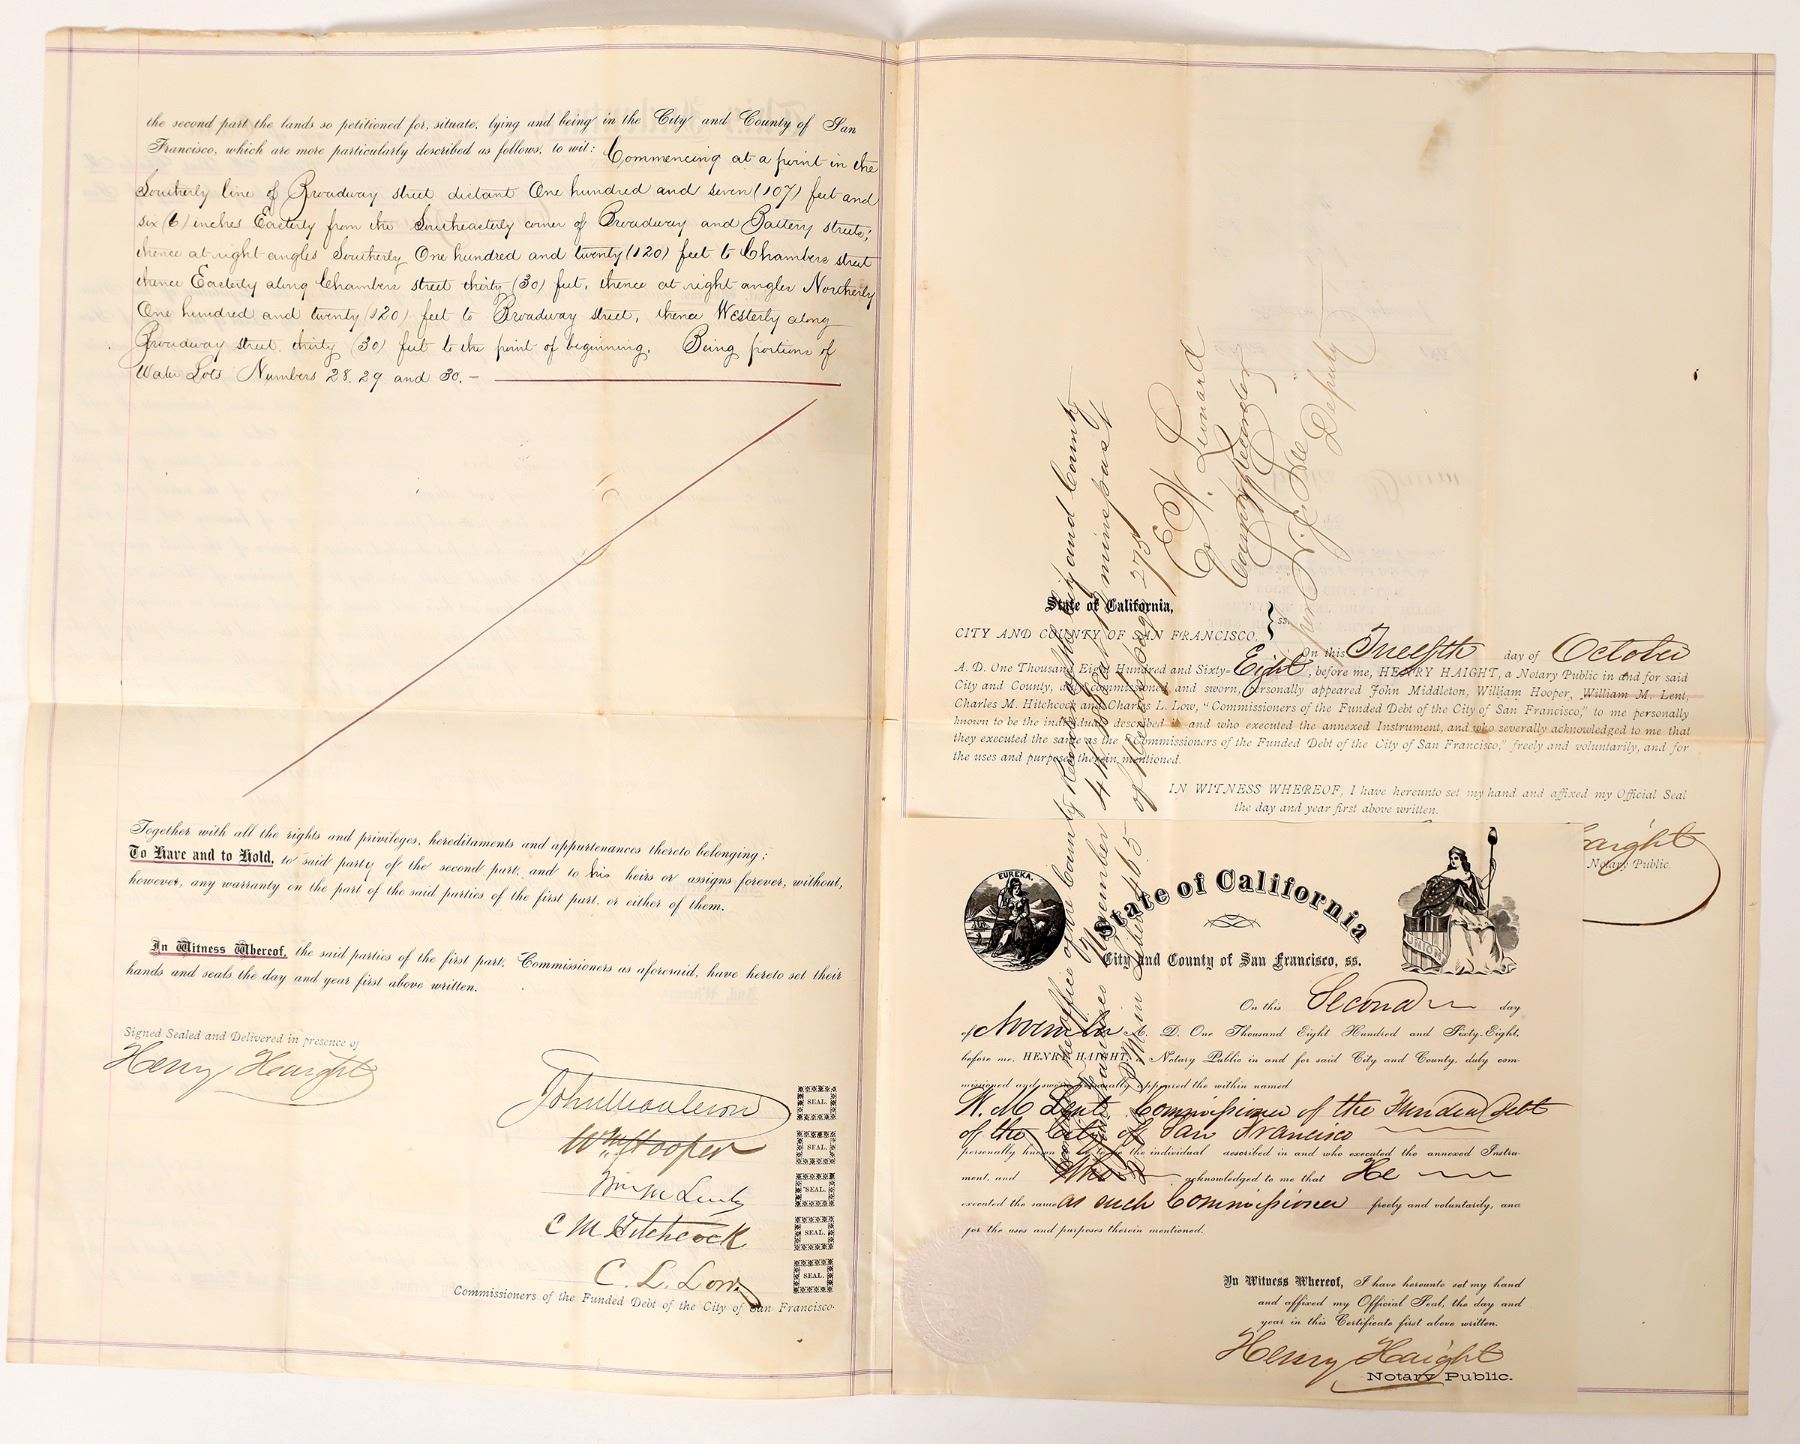 the second part the lands so petitioned for, situate, lying and being in the City and County of San
Francisco, which are more particularly described as follows, to wit: Commencing at a point in the
Southerly line of Broadway street distant One hundred and seven (107) feet and
six (6) inches Easterly from the Southeasterly corner of Broadway and Battery streets;
thence at right angles Southerly One hundred and twenty (120) feet to Chambers street
thence Easterly along Chambers street thirty (30) feet, thence at right angles Northerly
One hundred and twenty (120) feet to Broadway street, thence Westerly along
Broadway street thirty (30) feet to the point of beginning. Being portions of
Water Lots Numbers 28. 29 and 30. —
Together with all the rights and privileges, hereditaments and appurtenances thereto belonging;
To Have and to Hold, to said party of the second part, and to his heirs or assigns forever, without,
however, any warranty on the part of the said parties of the first part, or either of them.
In Witness Whereof, the said parties of the first part, Commissioners as aforesaid, have hereto set their
hands and seals the day and year first above written.
Signed Sealed and Delivered in presence of
Henry Haight
John Middleton SEAL.
Wm Hooper SEAL.
Wm M Lent SEAL.
C M Hitchcock SEAL.
C. L. Low. SEAL.
Commissioners of the Funded Debt of the City of San Francisco.
State of California,
CITY AND COUNTY OF SAN FRANCISCO, } ss.
On this Twelfth day of October
A. D. One Thousand Eight Hundred and Sixty-Eight, before me, HENRY HAIGHT, a Notary Public in and for said
City and County, duly commissioned and sworn, personally appeared John Middleton, William Hooper, William M. Lent,
Charles M. Hitchcock and Charles L. Low, "Commissioners of the Funded Debt of the City of San Francisco," to me personally
known to be the individuals described in and who executed the annexed Instrument, and who severally acknowledged to me that
they executed the same as the "Commissioners of the Funded Debt of the City of San Francisco," freely and voluntarily, and for
the uses and purposes therein mentioned.
IN WITNESS WHEREOF, I have hereunto set my hand and affixed my Official Seal
the day and year first above written.
Haight
Notary Public.
EUREKA.
UNION
State of California
City and County of San Francisco, ss.
On this Second day
of November A. D. One Thousand Eight Hundred and Sixty-Eight,
before me, HENRY HAIGHT, a Notary Public in and for said City and County, duly com-
missioned and sworn, personally appeared the within named
W. M. Lent Commissioner of the Funded Debt
of the City of San Francisco
personally known to me to be the individual described in and who executed the annexed Instru-
ment, and who acknowledged to me that He
executed the same as such Commissioner freely and voluntarily, and
for the uses and purposes therein mentioned.
In Witness Whereof, I have hereunto set my hand
and affixed my Official Seal, the day and
year in this Certificate first above written.
Henry Haight
Notary Public.
office of the County Recorder of the City and County
November 4th 1868 at minutes past
of Deeds page 275
E. W. Leonard
County Recorder
per Deputy